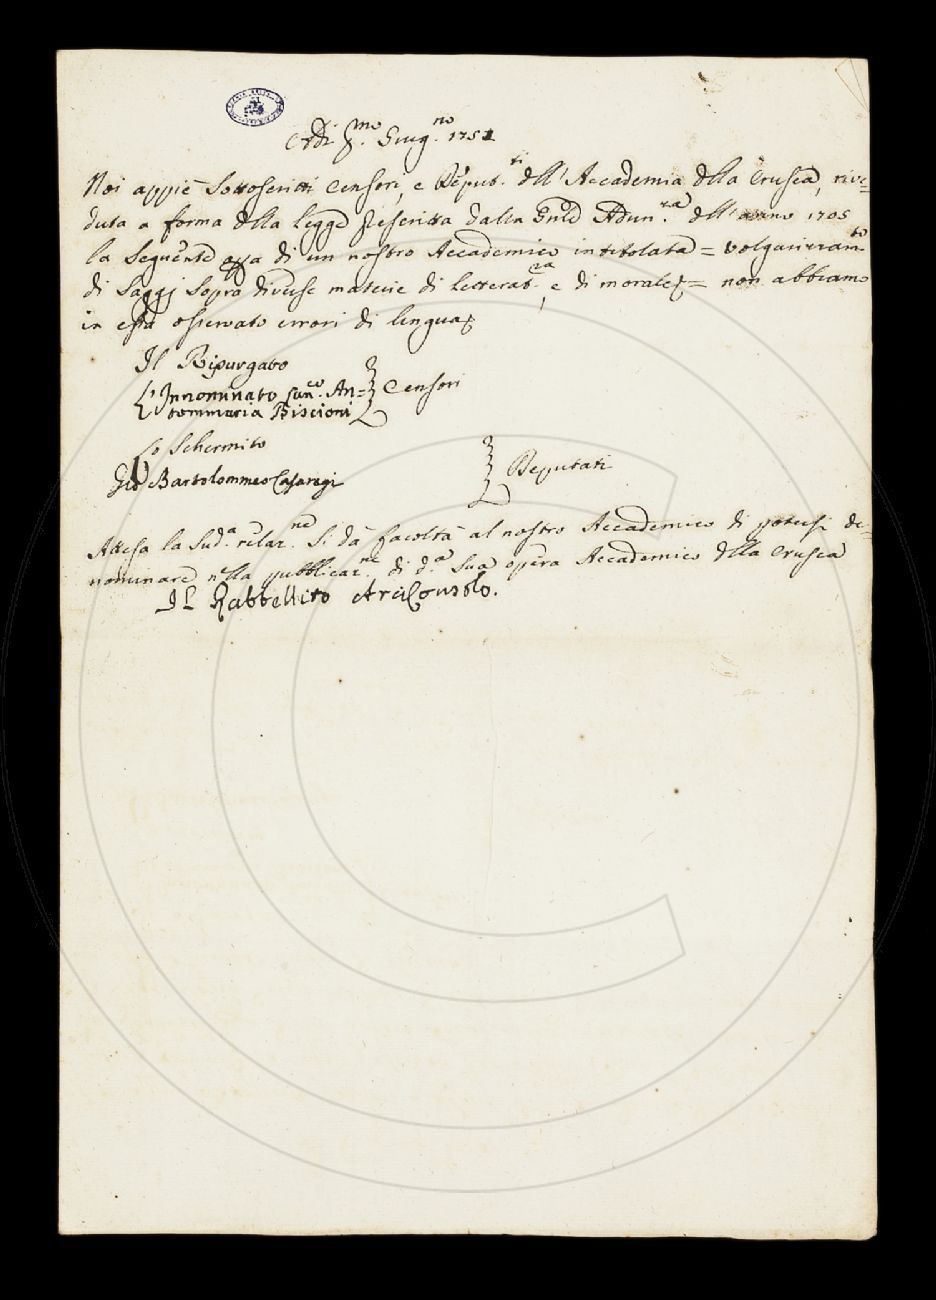 Adì p.mo Giug.no 1751
Noi appiè Sottoscritti Censori, e Deput.ti dell'Accademia della Crusca, rive=
duta a forma della Legge prescritta dalla Gnle Adun.za dell'anno 1705
la Seguente opa di un nostro Accademico intitolata = Volgarizzam.to
di Saggj Sopra diverse materie di Letterat.ra, e di morale = non abbiamo
in essa osservato errori di lingua
Il Ripurgato
L'Innominato Can.co An=
tommaria Biscioni
Censori
Lo Schermito
Gio Bartolommeo Casaregi
Deputati
Attesa la Sud.a relaz.ne Si dà facoltà al nostro Accademico di potersi de=
nominare nella pubblicaz.ne di d.a Sua opera Accademico della Crusca
Il Rabbellito Arciconsolo.